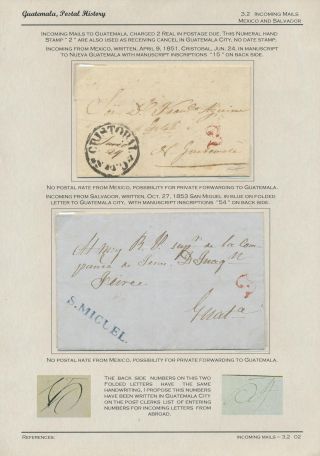 Guatemala, Postal History
3.2 Incoming Mails
Mexico and Salvador
Incoming Mails to Guatemala, charged 2 Real in postage due. This Numeral hand
Stamp "2" are also used as receiving cancel in Guatemala City, no date stamp.
Incoming from Mexico, written, April 9, 1851, Cristobal, Jun. 24, in manuscript
to Nueva Guatemala with manuscript inscriptions "15" on back side.
CRISTOBAL
2
Guatemala
No postal rate from Mexico, possibility for private forwarding to Guatemala.
Incoming from Salvador, written, Oct. 27, 1853 San Miguel in blue on folded
letter to Guatemala city, with manuscript inscriptions "54" on back side.
de la Com
2
S. MIGUEL.
No postal rate from Mexico, possibility for private forwarding to Guatemala.
The back side numbers on this two
folded letters have the same
handwriting. I propose this numbers
have been written in Guatemala City
on the post clerks list of entering
numbers for incoming letters from
abroad.
References:
Incoming Mails – 3.2 02